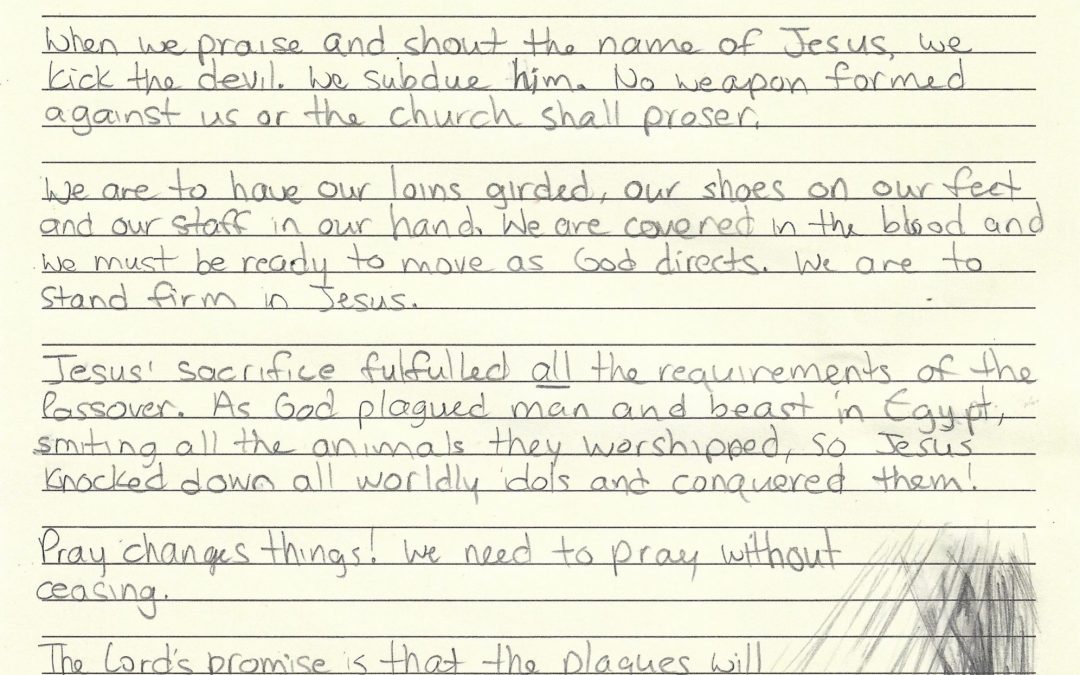 When we praise and shout the name of Jesus, we
kick the devil. We subdue him. No weapon formed
against us or the church shall proser.
We are to have our loins girded, our shoes on our feet
and our staff in our hand. We are covered in the blood and
we must be ready to move as God directs. We are to
stand firm in Jesus.
Jesus' sacrifice fulfulled all the requirements of the
Passover. As God plagued man and beast in Egypt,
smiting all the animals they worshipped, so Jesus
knocked down all worldly idols and conquered them!
Pray changes things! We need to pray without
ceasing.
The Lord's promise is that the plagues will